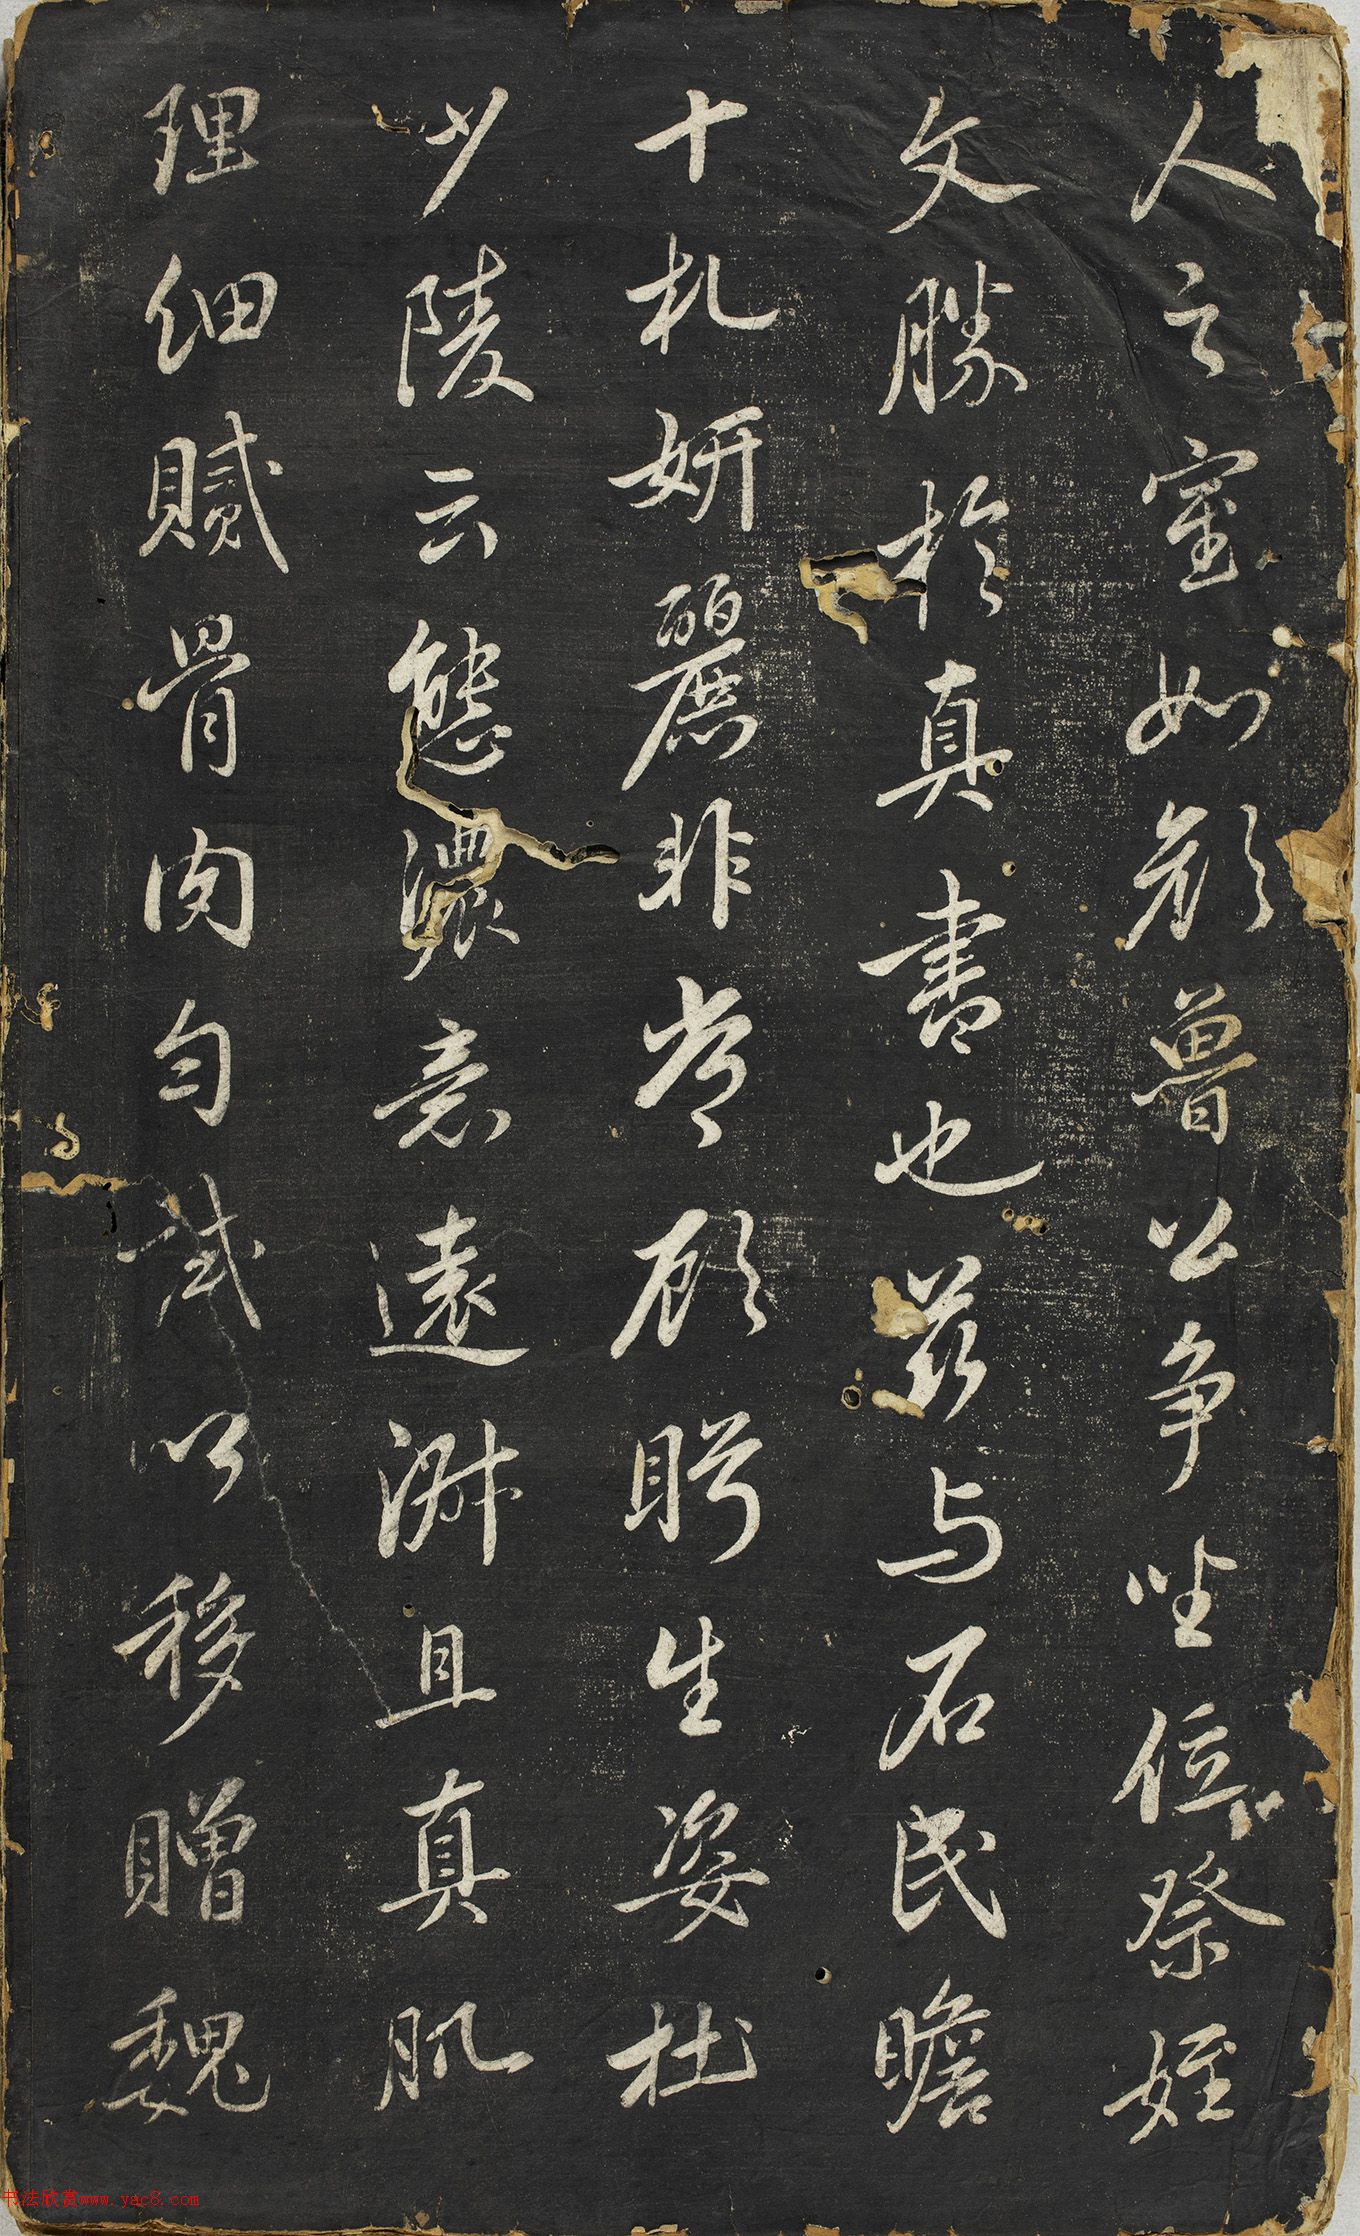 人之室如顏魯公争坐位祭姪
文勝於真書也茲与石民瞻
十札妍麗非常顧眄生姿杜
少陵云態濃意遠淑且真肌
理細膩骨肉勻試以移贈魏
书法欣赏www.yac8.com